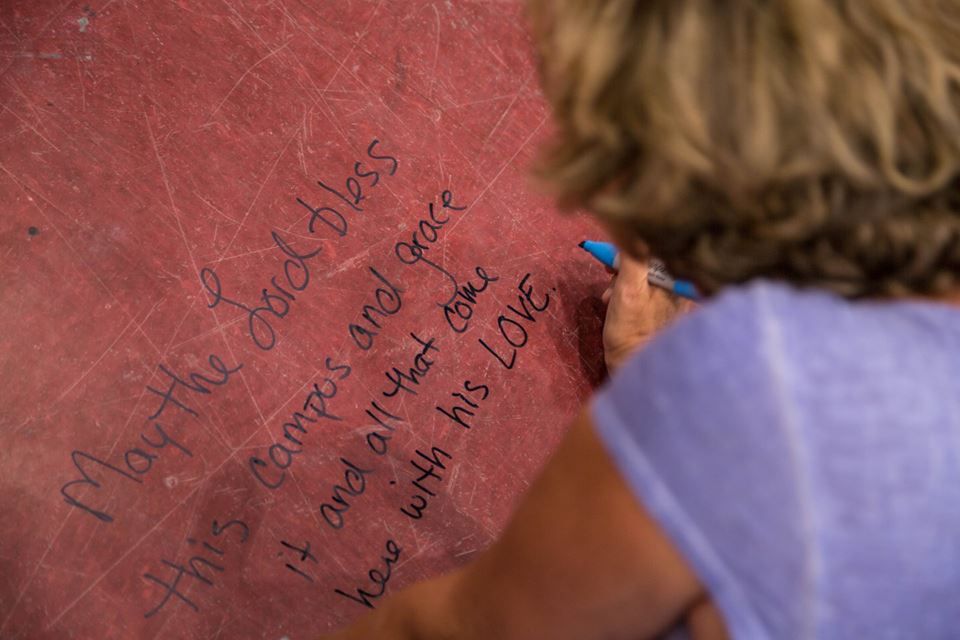 May the Lord bless
this campus and grace
it and all that come
here with his LOVE.